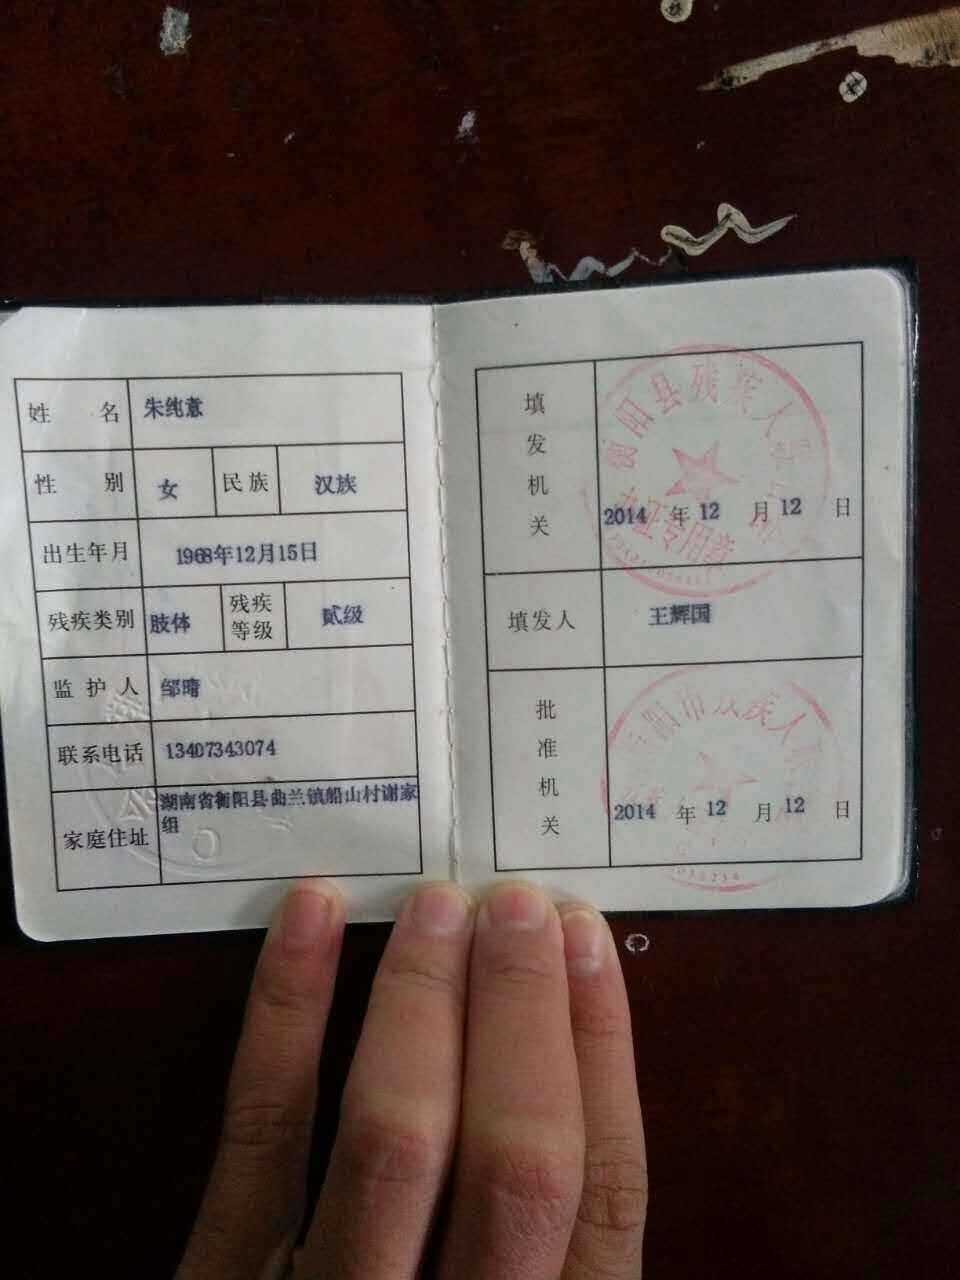 姓 名 朱纯意
性 别 女 民族 汉族
出生年月 1968年12月15日
残疾类别 肢体 残疾等级 贰级
监护人 邹晴
联系电话 13407343074
家庭住址 湖南省衡阳县曲兰镇船山村谢家
组
填发机关
衡阳县残疾人
办证专用章
2014 年 12 月 12 日
填发人 王辉国
批准机关
衡阳市残疾人
2014 年 12 月 12 日